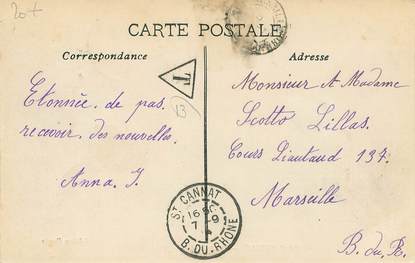 20+
CARTE POSTALE
Correspondance
Adresse
T
13
Etonnée de pas
recevoir des nouvelles.
Anna J.
Monsieur et Madame
Scotto Lillas.
Cours Lieutaud 137.
Marseille
B. du. R.
ST CANNAT
16
7 -9
B. DU RHONE